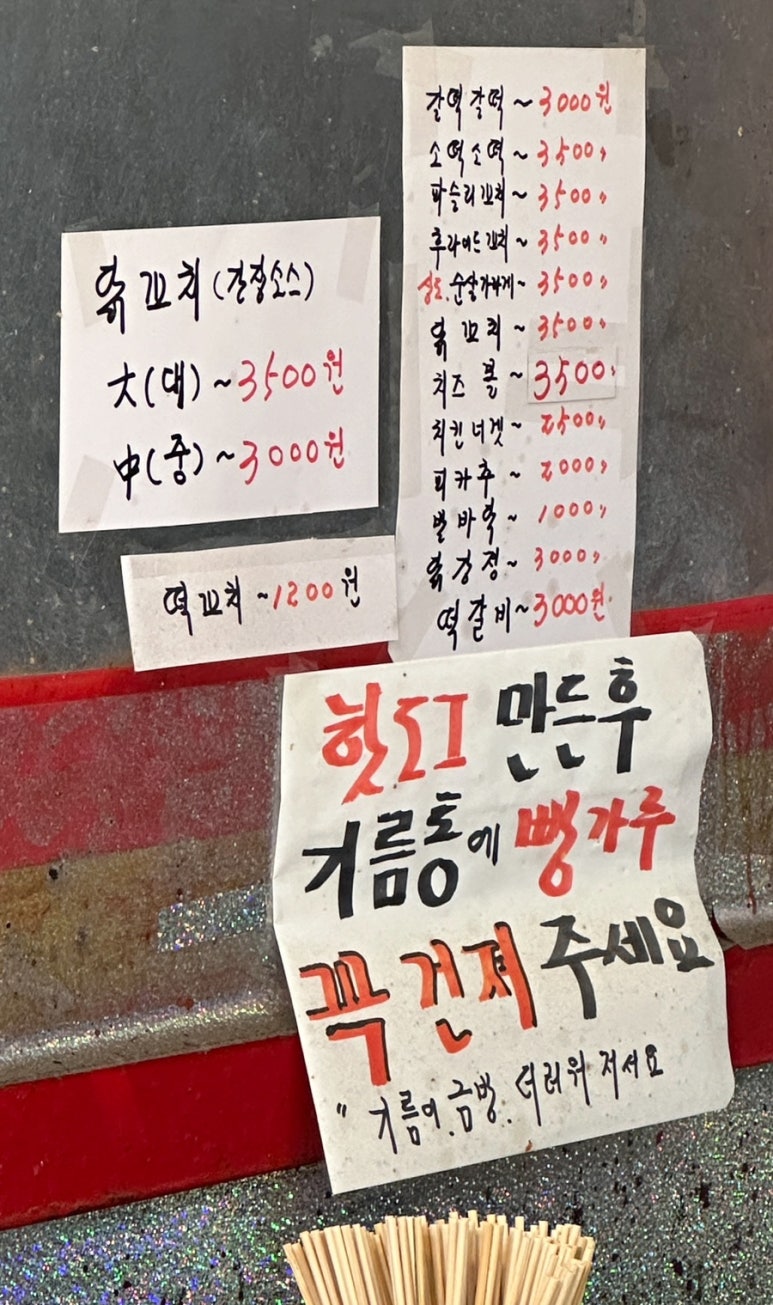 닭꼬치(간장소스)
大(대)~3500원
中(중)~3000원
떡꼬치~1200원
갈떡갈떡~3000원
소떡소떡~3500〃
파슬리꼬치~3500〃
후라이드꼬치~3500〃
순살가라게~3500〃
닭꼬치~3500〃
치즈볼~3500〃
치킨너겟~2500〃
피카츄~2000〃
발바닥~1000〃
닭강정~3000〃
떡갈비~3000원
핫도그 만든후
기름통에 빵가루
꼭 건져 주세요
"기름이.금방.더러워 저서요